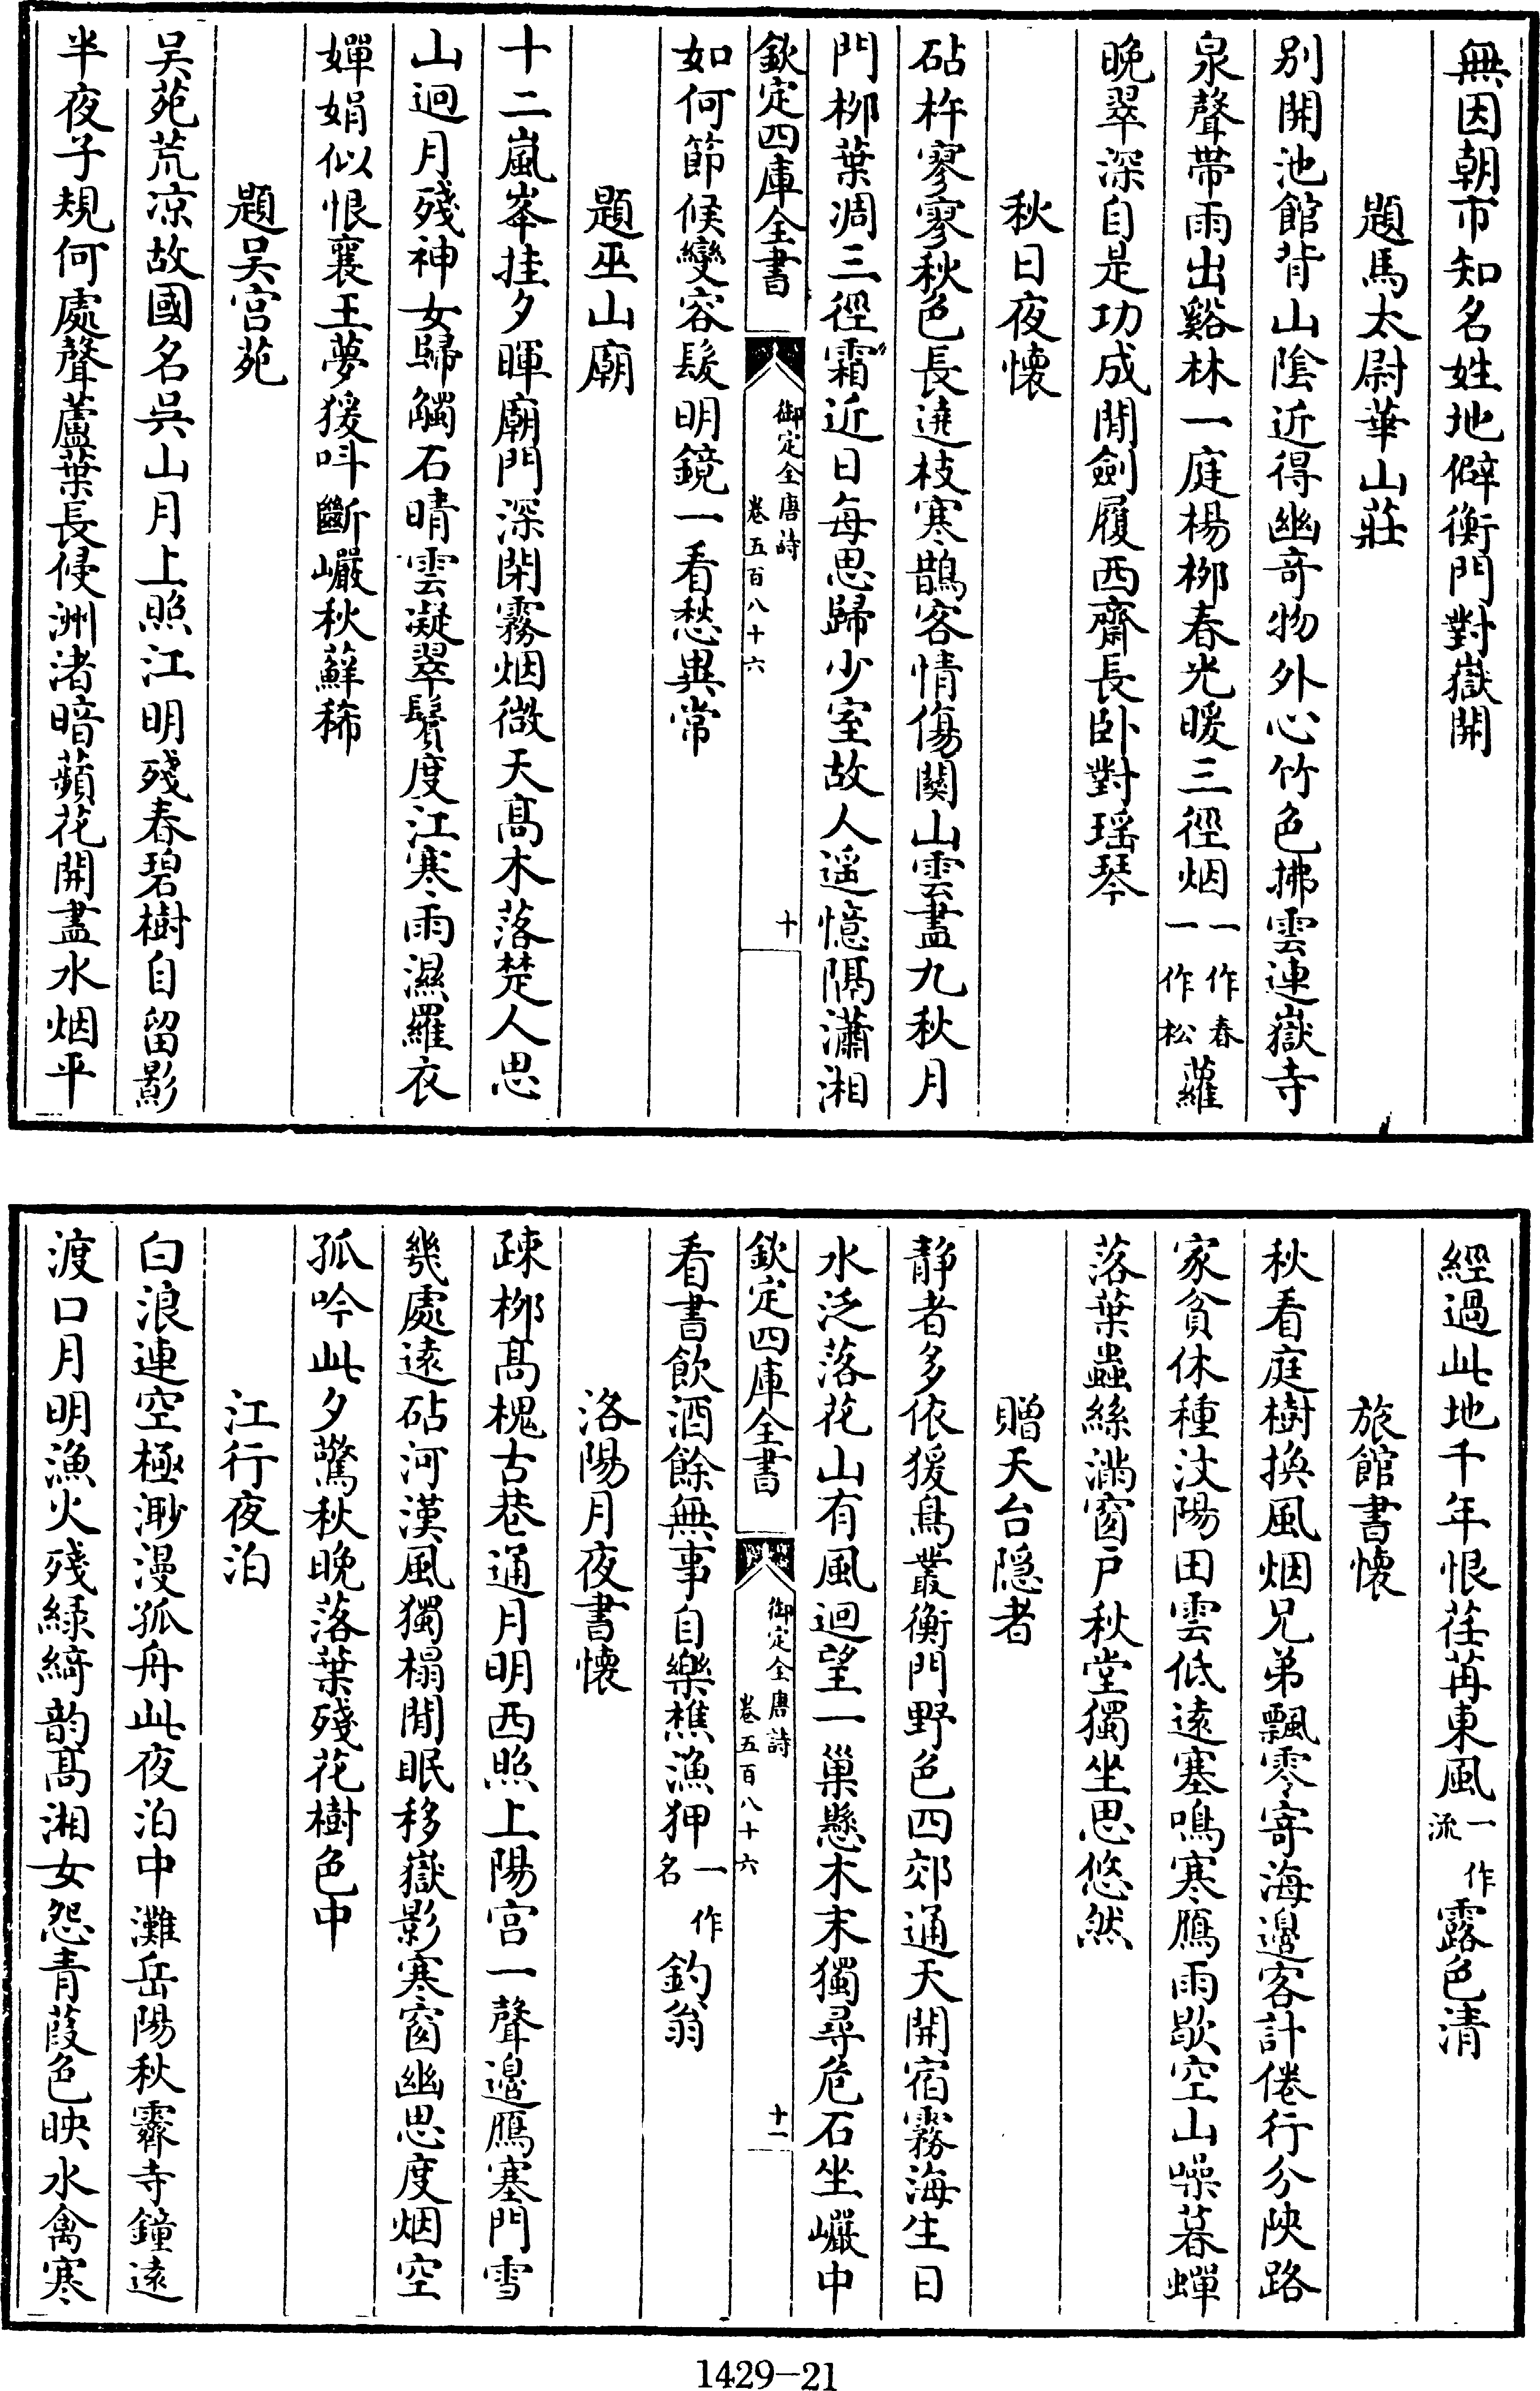 無因朝市知名姓地僻衡門對嶽開
題馬太尉華山莊
别開池館背山陰近得幽奇物外心竹色拂雲連嶽寺
泉聲帶雨出谿林一庭楊栁春光暖三徑烟一作春一作松蘿
晚翠深自是功成閒劍履西齋長卧對瑶琴
秋日夜懷
砧杵寥寥秋色長遶枝寒鵲客情傷關山雲盡九秋月
門栁葉凋三徑霜近日每思歸少室故人遥憶隔瀟湘
欽定四庫全書 御定全唐詩 卷五百八十六 十
如何節候變容髮明鏡一看愁異常
題巫山廟
十二嵐峯挂夕暉廟門深閉霧烟微天髙木落楚人思
山迥月殘神女歸觸石晴雲凝翠鬢度江寒雨濕羅衣
嬋娟似恨襄王夢猨呌斷巖秋蘚稀
題吳宫苑
吳苑荒凉故國名吳山月上照江明殘春碧樹自留影
半夜子規何處聲蘆葉長侵洲渚暗蘋花開盡水烟平
經過此地千年恨荏苒東風一作流露色清
旅館書懷
秋看庭樹換風烟兄弟飄零寄海邉客計倦行分陜路
家貧休種汶陽田雲低遠塞鳴寒鴈雨歇空山噪暮蟬
落葉蟲絲滿窗戶秋堂獨坐思悠然
贈天台隱者
静者多依猨鳥叢衡門野色四郊通天開宿霧海生日
水泛落花山有風迴望一巢懸木末獨尋危石坐巖中
欽定四庫全書 御定全唐詩 卷五百八十六 十一
看書飲酒餘無事自樂樵漁狎一作名釣翁
洛陽月夜書懷
疎栁髙槐古巷通月明西照上陽宫一聲邉鴈塞門雪
幾處遠砧河漢風獨榻閒眠移嶽影寒窗幽思度烟空
孤吟此夕驚秋晚落葉殘花樹色中
江行夜泊
白浪連空極渺漫孤舟此夜泊中灘岳陽秋霽寺鐘遠
渡口月明漁火殘緑綺韵髙湘女怨青葭色映水禽寒
1429-21